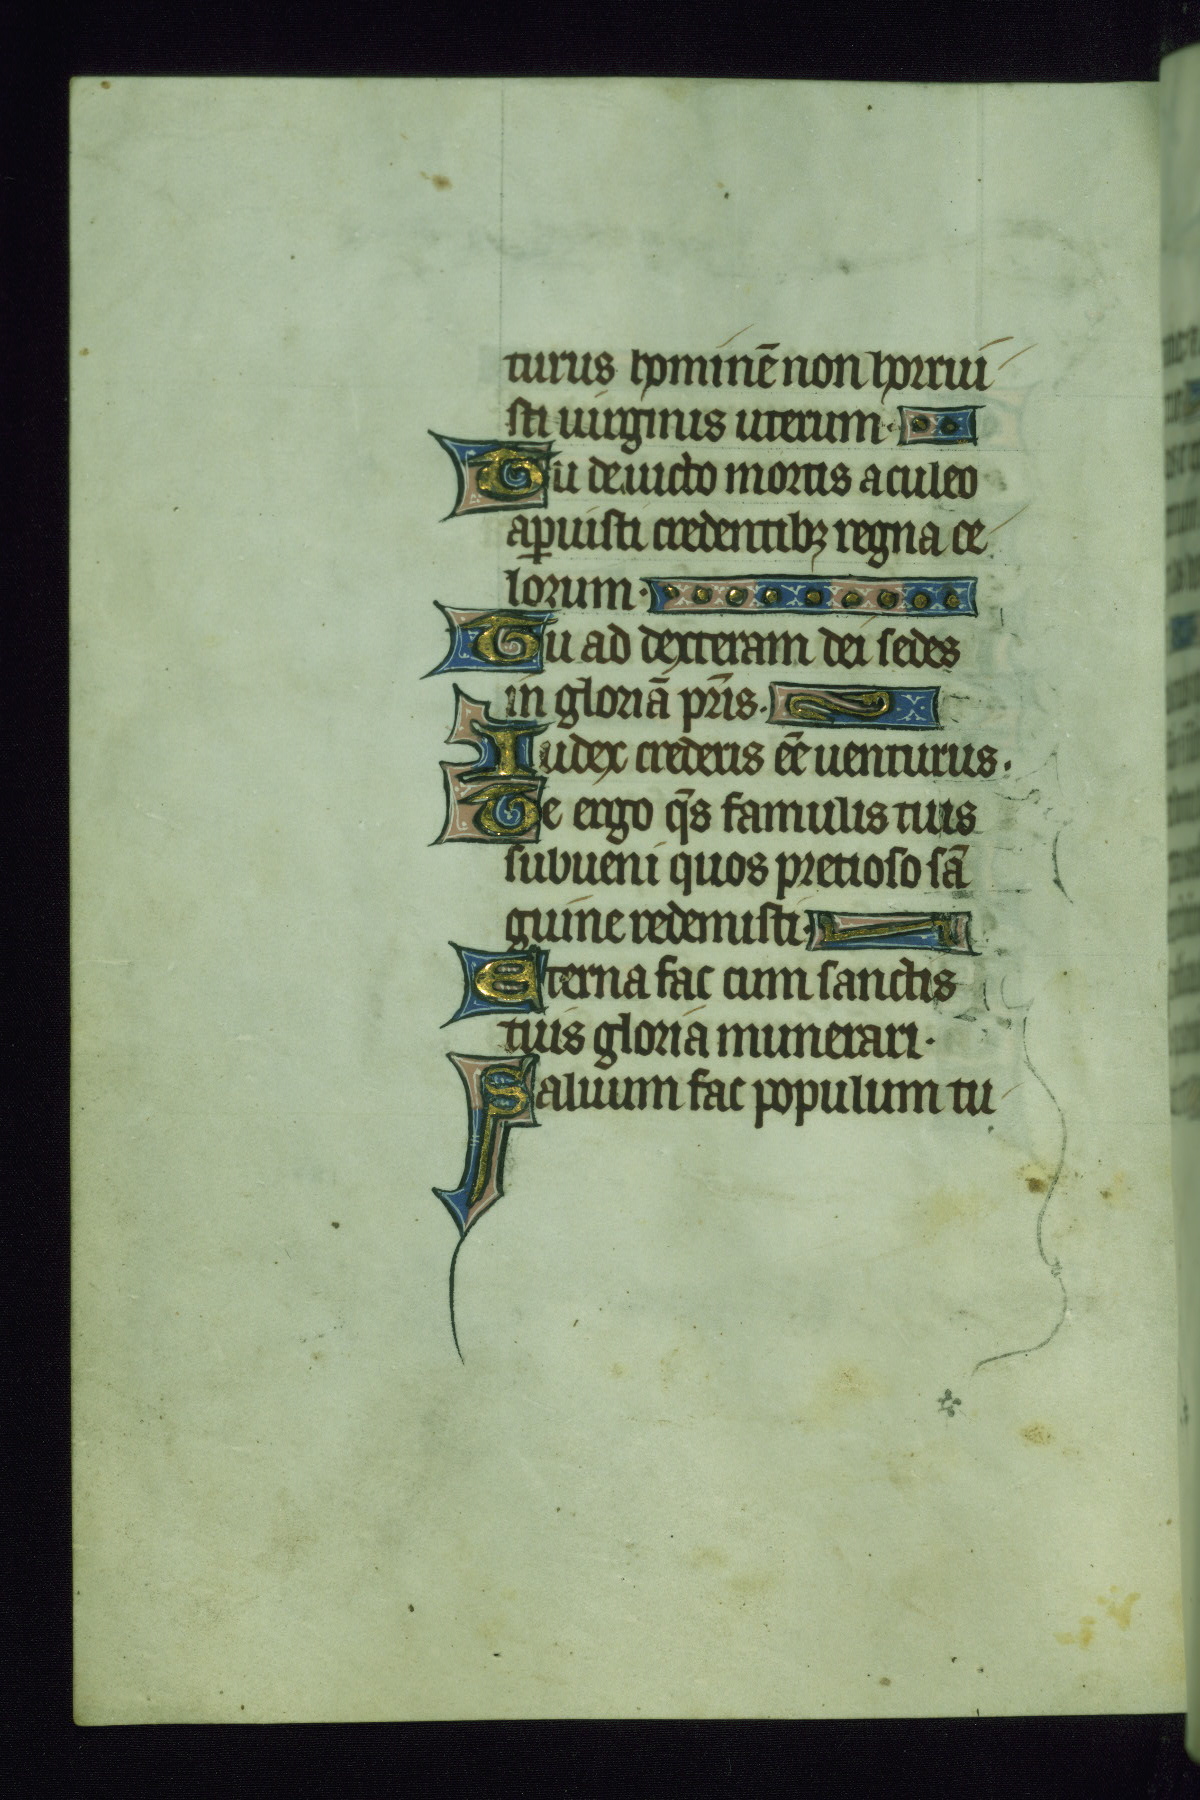 turus hominē non horrui
sti uirginis uterum.
Tu deuicto mortis aculeo
aꝑuisti credentibꝫ regna ce
lorum.
Tu ad dexteram dei sedes
in gloriā pr̄is.
Iudex crederis ēe uenturus.
Te ergo q̄s famulis tuis
subueni quos pretioso sā
guine redemisti.
Eterna fac cum sanctis
tuis gloria munerari.
Saluum fac populum tu